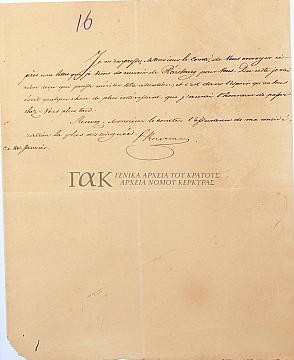 16
Je m'empresse, Monsieur le Comte, de Vous envoyer ci-
près une lettre que je viens de recevoir de Pétersbourg pour Vous. Du reste je n'ai
rien reçu qui puisse mériter Votre attention, et c'est dans l'espoir qu'on vous
écrit quelque chose de plus intéressant, que j'aurai l'honneur de passer
chez Vous plus tard.
Recevez, Monsieur le Comte, l'assurance de ma considé-
ration la plus distinguée
ce janvier.
ΓΑΚ
ΓΕΝΙΚΑ ΑΡΧΕΙΑ ΤΟΥ ΚΡΑΤΟΥΣ
ΑΡΧΕΙΑ ΝΟΜΟΥ ΚΕΡΚΥΡΑΣ